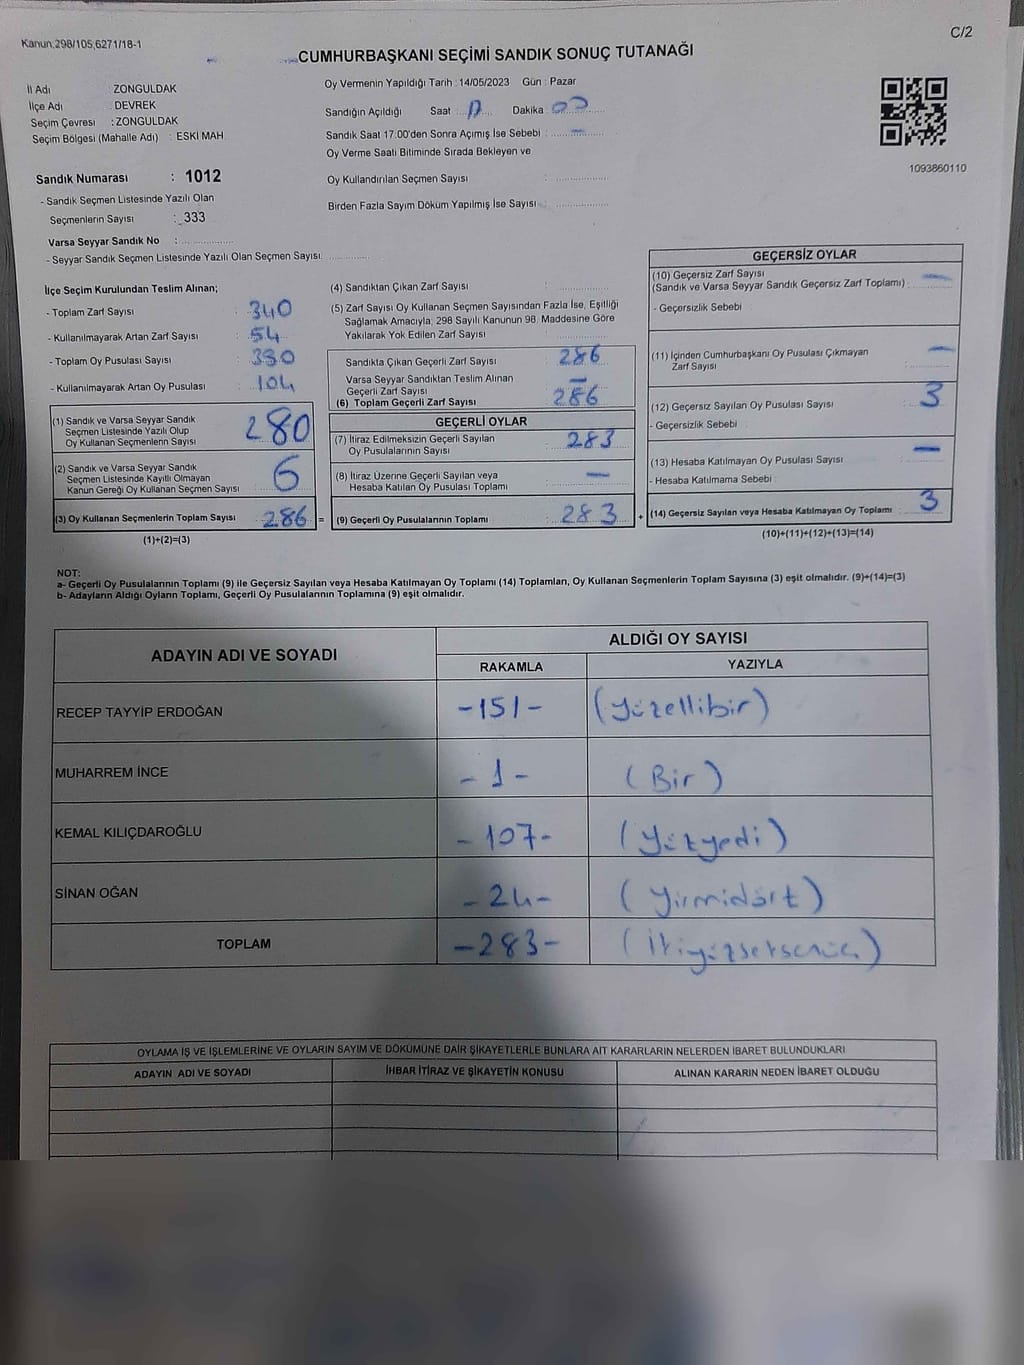 Kanun;298/105,6271/18-1
C/2
CUMHURBAŞKANI SEÇİMİ SANDIK SONUÇ TUTANAĞI
İl Adı ZONGULDAK
İlçe Adı DEVREK
Seçim Çevresi : ZONGULDAK
Seçim Bölgesi (Mahalle Adı) : ESKİ MAH.
Sandık Numarası : 1012
- Sandık Seçmen Listesinde Yazılı Olan
Seçmenlerin Sayısı : 333
Varsa Seyyar Sandık No :
- Seyyar Sandık Seçmen Listesinde Yazılı Olan Seçmen Sayısı:
Oy Vermenin Yapıldığı Tarih : 14/05/2023 Gün : Pazar
Sandığın Açıldığı Saat : Dakika :
Sandık Saat 17.00'den Sonra Açımış İse Sebebi : -
Oy Verme Saati Bitiminde Sırada Bekleyen ve
Oy Kullandırılan Seçmen Sayısı :
Birden Fazla Sayım Döküm Yapılmış İse Sayısı :
1093860110
İlçe Seçim Kurulundan Teslim Alınan;
- Toplam Zarf Sayısı : 340
- Kullanılmayarak Artan Zarf Sayısı : 54
- Toplam Oy Pusulası Sayısı : 390
- Kullanılmayarak Artan Oy Pusulası : 104
(1) Sandık ve Varsa Seyyar Sandık
Seçmen Listesinde Yazılı Olup
Oy Kullanan Seçmenlerin Sayısı 280
(2) Sandık ve Varsa Seyyar Sandık
Seçmen Listesinde Kayıtlı Olmayan
Kanun Gereği Oy Kullanan Seçmen Sayısı 6
(3) Oy Kullanan Seçmenlerin Toplam Sayısı 286 =
(1)+(2)=(3)
(4) Sandıktan Çıkan Zarf Sayısı :
(5) Zarf Sayısı Oy Kullanan Seçmen Sayısından Fazla İse, Eşitliği
Sağlamak Amacıyla; 298 Sayılı Kanunun 98. Maddesine Göre
Yakılarak Yok Edilen Zarf Sayısı :
Sandıkta Çıkan Geçerli Zarf Sayısı : 286
Varsa Seyyar Sandıktan Teslim Alınan
Geçerli Zarf Sayısı : -
(6) Toplam Geçerli Zarf Sayısı : 286
GEÇERLİ OYLAR
(7) İtiraz Edilmeksizin Geçerli Sayılan
Oy Pusulalarının Sayısı : 283
(8) İtiraz Üzerine Geçerli Sayılan veya
Hesaba Katılan Oy Pusulası Toplamı : -
(9) Geçerli Oy Pusulalarının Toplamı : 283 +
GEÇERSİZ OYLAR
(10) Geçersiz Zarf Sayısı
(Sandık ve Varsa Seyyar Sandık Geçersiz Zarf Toplamı) : -
- Geçersizlik Sebebi :
(11) İçinden Cumhurbaşkanı Oy Pusulası Çıkmayan
Zarf Sayısı : -
(12) Geçersiz Sayılan Oy Pusulası Sayısı : 3
- Geçersizlik Sebebi :
(13) Hesaba Katılmayan Oy Pusulası Sayısı : -
- Hesaba Katılmama Sebebi :
(14) Geçersiz Sayılan veya Hesaba Katılmayan Oy Toplamı : 3
(10)+(11)+(12)+(13)=(14)
NOT:
a- Geçerli Oy Pusulalarının Toplamı (9) ile Geçersiz Sayılan veya Hesaba Katılmayan Oy Toplamı (14) Toplamları, Oy Kullanan Seçmenlerin Toplam Sayısına (3) eşit olmalıdır. (9)+(14)=(3)
b- Adayların Aldığı Oyların Toplamı, Geçerli Oy Pusulalarının Toplamına (9) eşit olmalıdır.
ADAYIN ADI VE SOYADI
ALDIĞI OY SAYISI
RAKAMLA YAZIYLA
RECEP TAYYİP ERDOĞAN -151- (yüzellibir)
MUHARREM İNCE -1- (Bir)
KEMAL KILIÇDAROĞLU -107- (yüzyedi)
SİNAN OĞAN -24- (yirmidört)
TOPLAM -283- (ikiyüzseksenüç)
OYLAMA İŞ VE İŞLEMLERİNE VE OYLARIN SAYIM VE DÖKÜMÜNE DAİR ŞİKAYETLERLE BUNLARA AİT KARARLARIN NELERDEN İBARET BULUNDUKLARI
ADAYIN ADI VE SOYADI İHBAR İTİRAZ VE ŞİKAYETİN KONUSU ALINAN KARARIN NEDEN İBARET OLDUĞU